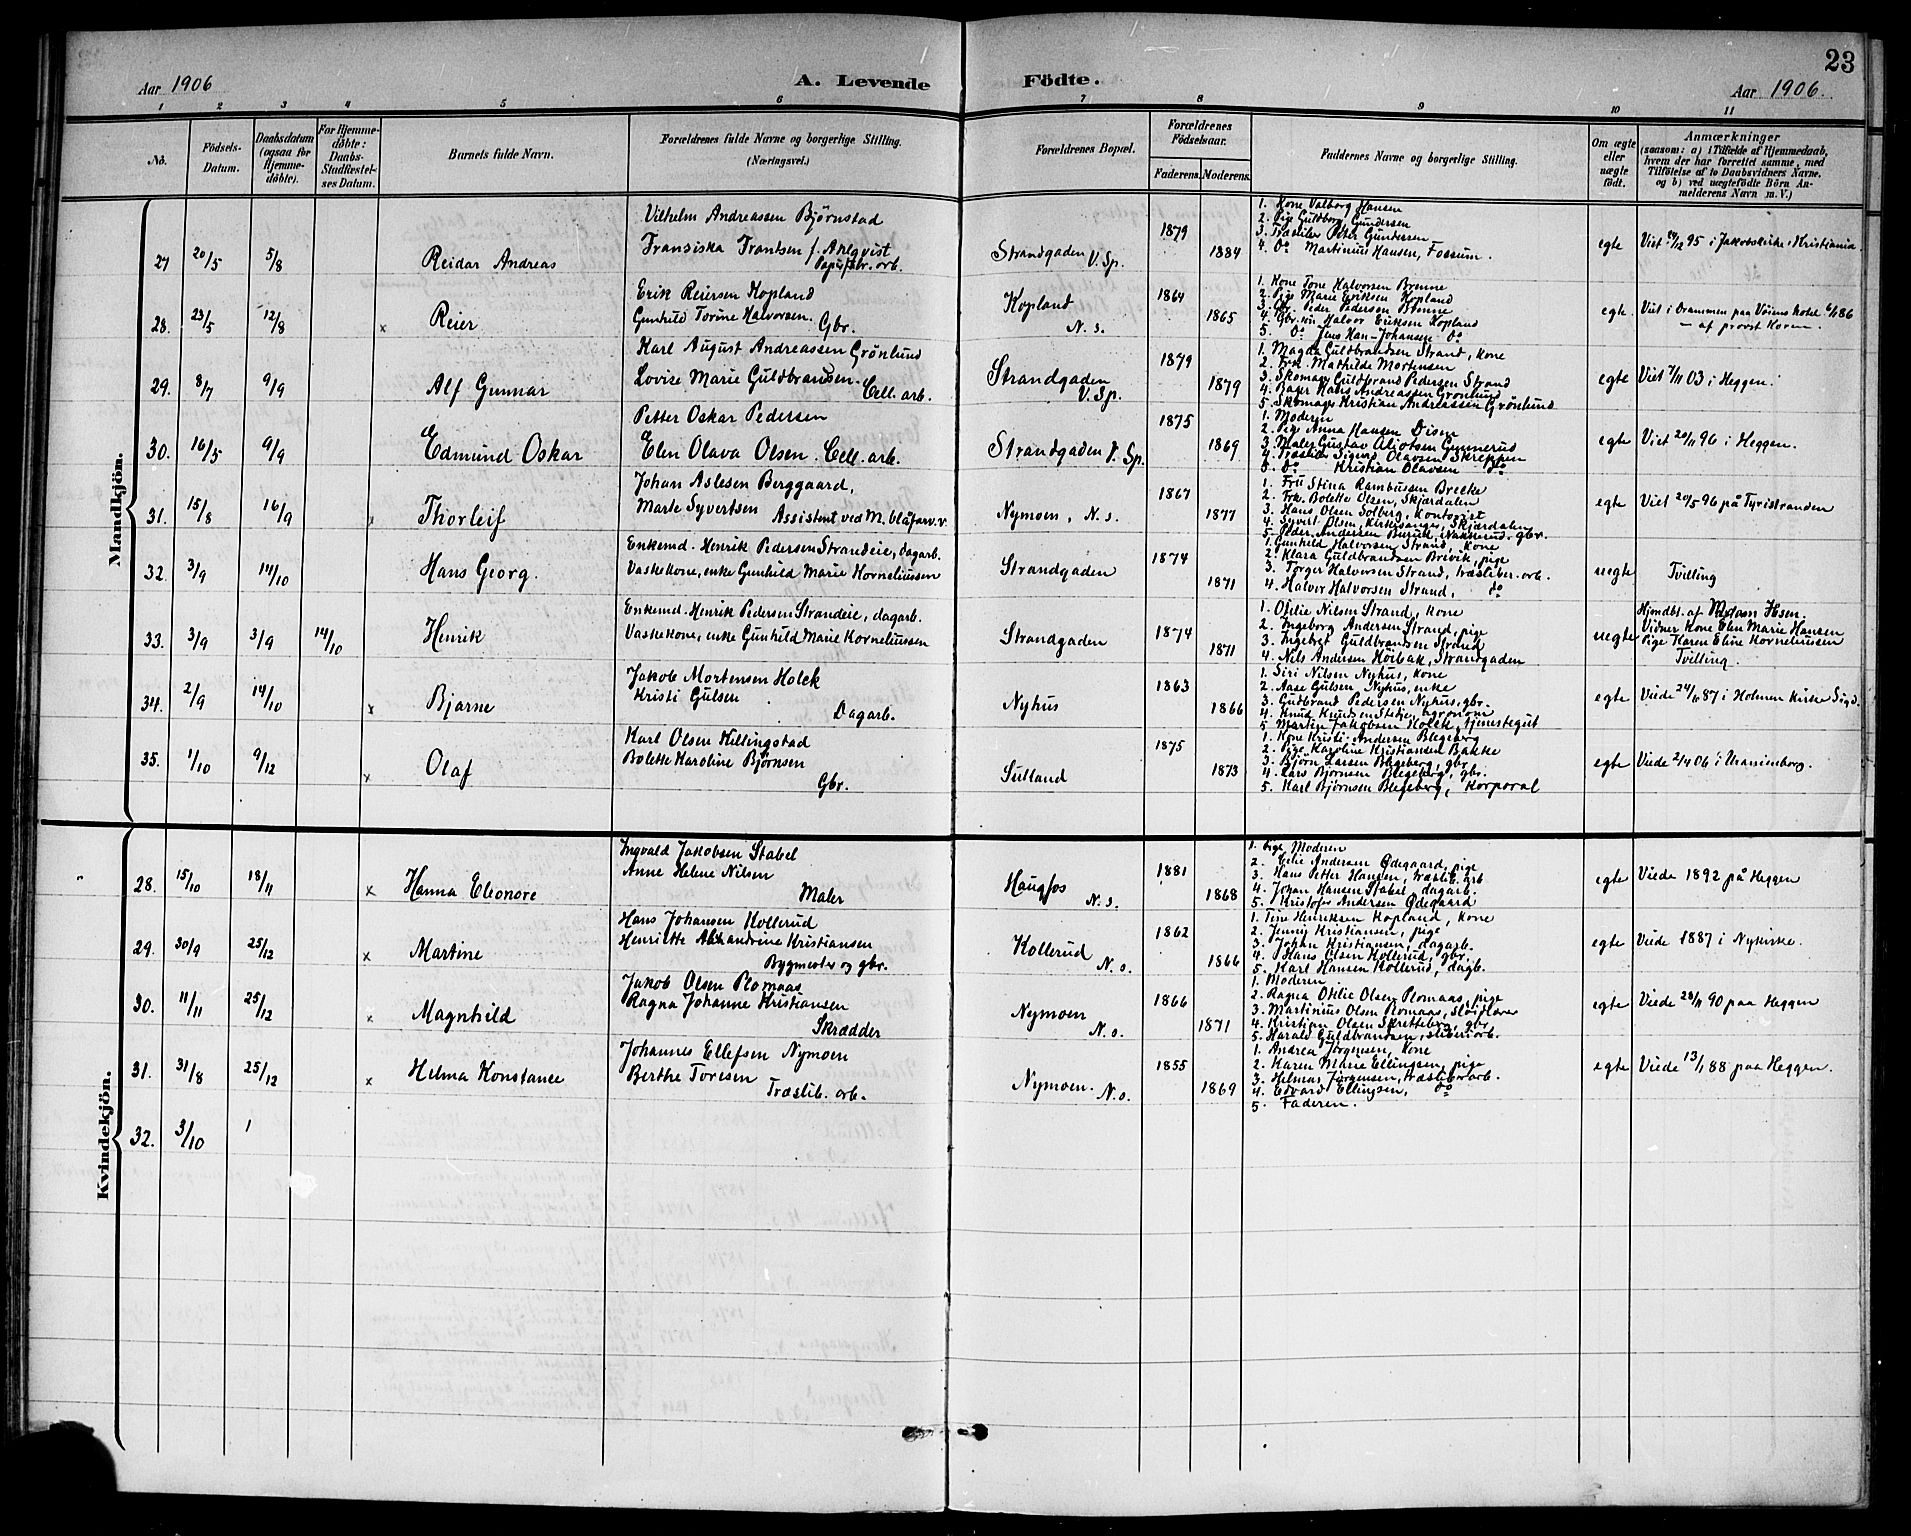 23
Aar 1906
A. Levende Födte.
Aar 1906.
1 2 3 4 5 6 7 8 9 10 11
No.
Födsels-Datum.
Daabsdatum (ogsaa for Hjemme-døbte).
For Hjemme-døbte: Daabs-Stadfæstel-ses Datum.
Barnets fulde Navn.
Forældrenes fulde Navne og borgerlige Stilling. (Næringsvei.)
Forældrenes Bopæl.
Forældrenes Födselsaar.
Faderens. Moderens.
Faddernes Navne og borgerlige Stilling.
Om ægte eller uægte födt.
Anmærkninger
(saasom: a) i Tilfælde af Hjemmedaab, hvem der har forrettet samme, med Tilföielse af to Daabsvidners Navne. og b) ved uægtefödte Börn An-melderens Navn m. V.)
Mandkjön.
27 20/5 5/8 Reidar Andreas
Vilhelm Andreassen Bjørnstad
Fransiska Frantsen f. Ahlqvist
Papirfabr. arb.
Strandgaden V. Sp.
1879 1884
1. Kone Valborg Hansen
2. Pige Guldborg Gundersen
3. Træsliber Peter Gundersen
4. Do Martinius Hansen, Fossum.
egte
Viet 24/12 95 i Jakobskirke i Kristiania
28. 23/5 12/8 x Reier
Erik Reiersen Kopland
Gunhild Torine Halvorsen. Gbr.
Kopland N. s.
1864 1865
1. Kone Tone Halvorsen Brenne
2. Pige Marie Eriksen Kopland
3. Gbr. Peder Pedersen Brenne
4. Gbr. søn Halvor Eriksen Kopland
5. Do Jens Han-Johansen Do
egte
Viet i Drammen paa Vøiens hotel 6/1 86
— af provst Koren.
29. 8/7 9/9 Alf Gunnar
Karl August Andreassen Grönlund
Lovise Marie Guldbrandsen. Cell. arb.
Strandgaden V. Sp.
1879 1879
1. Magda Guldbrandsen Strand, kone
2. Frk. Mathilde Mortensen
3. Skomager Guldbrand Pedersen Strand
4. Bager Hans Andreassen Grönlund
5. Skomager Kristian Andreassen Grönlund
egte
Viet 7/11 03 i Heggen.
30. 16/5 9/9 Edmund Oskar
Petter Oskar Pedersen
Elen Olava Olsen. Cell. arb.
Strandgaden V. Sp.
1875 1869
1. Moderen
2. Pige Anna Hansen Disen
3. Maler Gustav Aliotsen Gunnerud
4. Træsliber Sigurd Olavsen Skreppen
5. Do Kristian Olavsen Do
egte
Viet 20/11 96 i Heggen.
31. 15/8 16/9 x Thorleif
Johan Aslesen Berggaard,
Marte Syvertsen Assistent ved M. blåfarv. v.
Nymoen, N. s.
1867 1877
1. Fru Stina Rambussen Brecke
2. Frk. Bolette Olsen, Skjærdalen
3. Hans Olsen Solberg, Kontorist
4. Syvert Olsen, Kirkesanger, Skjærdalen
5. Peder Andersen Burud, Nakkerud, gbr.
egte
Viet 20/5 96 på Tyristranden
32. 3/9 14/10 Hans Georg.
Enkemd. Henrik Pedersen Strandeie, dagarb.
Vaskekone, enke Gunhild Marie Korneliussen
Strandgaden
1874 1871
1. Gunhild Halvorsen Strand, kone
2. Klara Guldbrandsen Brevik, pige
3. Torger Halvorsen Strand, træsliber. arb.
4. Halvor Halvorsen Strand, do
uegte
Tvilling
33. 3/9 3/9 14/10 Henrik
Enkemd. Henrik Pedersen Strandeie, dagarb.
Vaskekone, enke Gunhild Marie Korneliussen
Strandgaden
1874 1871
1. Otilie Nilsen Strand, kone
2. Ingeborg Andersen Strand, pige
3. Ingebret Guldbrandsen Strand
4. Nils Andersen Höibak, Strandgaden
uegte
Hjmdbt. af Mdam Ihsen.
Vidner Kone Elen Marie Hansen
Pige Karen Eline Korneliusen
Tvilling.
34. 2/9 14/10 x Bjarne
Jakob Mortensen Holck
Kristi Gulsen
Dagarb.
Nyhus
1863 1866
1. Siri Nilsen Nyhus, kone
2. Aase Gulsen Nyhus, enke
3. Gudbrand Pedersen Nyhus, gbr.
4. Knud Knudsen Stedje, agronom
5. Martin Jakobsen Holck, tjenestegut
egte
Viede 24/11 87 i Holmen Kirke Sigd.
35. 1/10 9/12 x Olaf
Karl Olsen Killingstad
Bolette Karoline Bjørnsen
Gbr.
Sulland
1875 1873
1. Kone Kristi Andersen Blegeberg
2. Pige Karoline Kristiansen Bakke
3. Bjørn Larsen Blegeberg, gbr
4. Lars Bjørnsen Blegeberg, gbr.
5. Karl Bjørnsen Blegeberg, Korporal
egte
Viede 2/4 06 i Uranienborg.
Kvindekjön.
28. 15/10 18/11 x Hanna Eleonore
Ingvald Jakobsen Stabel
Anne Helene Nilsen
Maler
Haugfos N. s.
1881 1868
1. Pige Moderen
2. Celie Andersen Ødegaard, pige
3. Hans Petter Hansen, træslib. arb
4. Johan Hansen Stabel, dagarb.
5. Kristofer Andersen Ødegaard
egte
Viede 1892 på Heggen
29. 30/9 25/12 x Martine
Hans Johansen Kollerud
Henriette Alexandrine Kristiansen
Bygmester og gbr.
Kollerud N. o.
1862 1866
1. Tine Henriksen Kopland, kone
2. Jenny Kristiansen, pige
3. Johan Kristiansen, dagarb.
4. Hans Olsen Kollerud, gbr.
5. Karl Hansen Kollerud, dagb.
egte
Viede 1887 i Nykirke.
30. 11/11 25/12 x Magnhild
Jakob Olsen Plomaas
Ragna Johanne Kristiansen
Skrædder
Nymoen N. o.
1866 1871
1. Moderen
2. Ragna Otilie Olsen Plomaas, pige
3. Martinius Olsen Plomaas, Slöidlærer
4. Kristian Olsen Skretteberg, gbr
5. Harald Guldbrandsen, sliberiarb.
egte
Viede 28/11 90 paa Heggen
31. 31/8 25/12 x Helma Konstance
Johannes Ellefsen Nymoen
Berthe Toresen
Træslib. arb.
Nymoen. N. o.
1855 1869
1. Andrea Jørgensen, kone
2. Karen Marie Ellingsen, pige
3. Helmer Jørgensen, træsliberarb.
4. Edvard Ellingsen, do
5. Faderen.
egte
Viede 13/1 88 paa Heggen.
32. 3/10 1